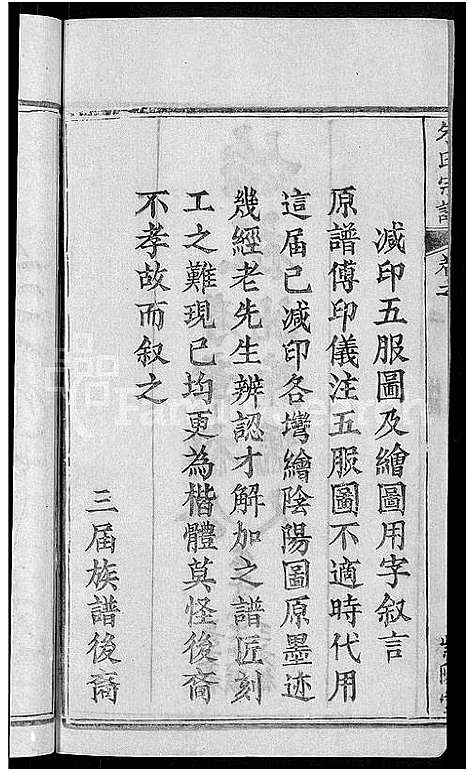 朱氏宗譜
卷之
減印五服圖及繪圖用字叙言
原譜傅印儀注五服圖不適時代用
這届已減印各塆繪陰陽圖原墨迹
幾經老先生辨認才解加之譜匠刻
工之難現已均更為楷體莫怪後裔
不孝故而叙之
三届族譜後裔